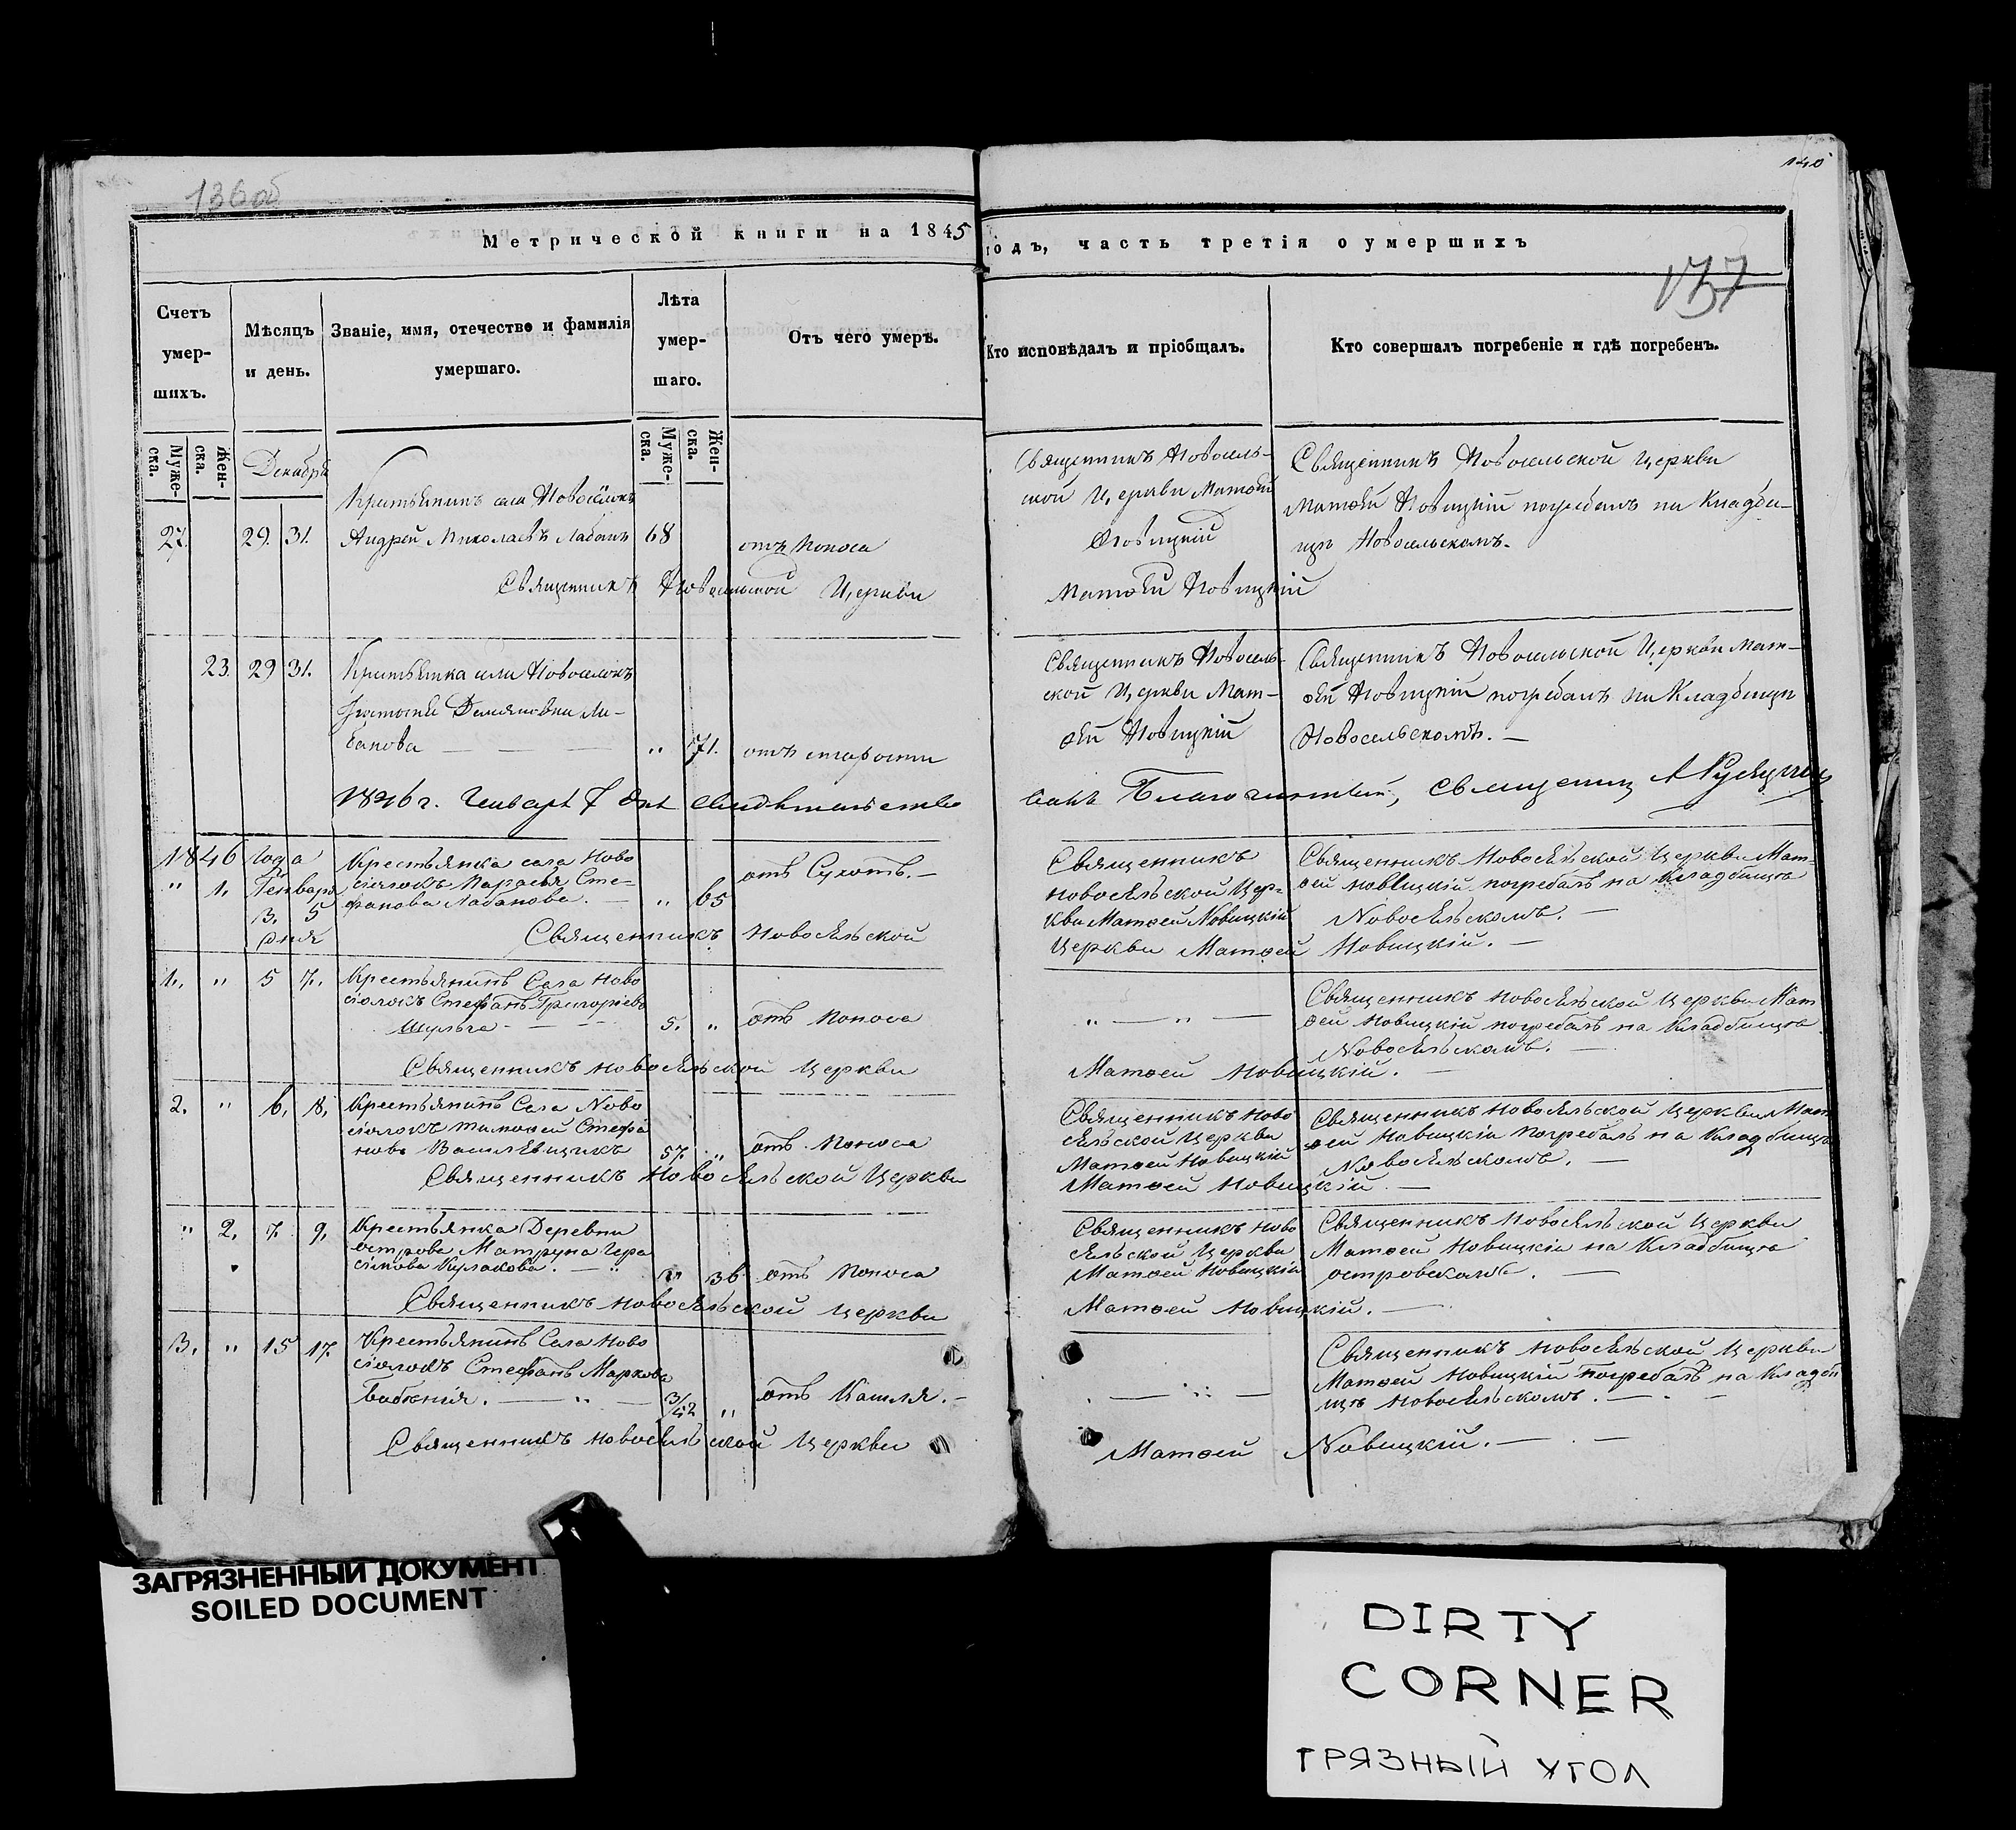 136об
140
Метрической книги на 1845 годъ, часть третія о умершихъ
137
Счетъ умер-шихъ.
Мѣсяцъ и день.
Званіе, имя, отечество и фамилія умершаго.
Лѣта умер-шаго.
Отъ чего умеръ.
Кто исповѣдалъ и пріобщалъ.
Кто совершалъ погребеніе и гдѣ погребенъ.
Муже-ска.
Жен-ска.
Декабрь
Муже-ска.
Жен-ска.
27. 29. 31.
Крестьянинъ села Новосіолокъ
Андрей Николаевъ Лабанъ 68
отъ поноса
Священникъ Новосель-
ской Церкви Матѳей
Новицкій
Священникъ Новосельской Церкви
Матѳей Новицкій погребалъ на Кладби-
щѣ Новосельскомъ.
Священникъ Новосельской Церкви Матѳей Новицкій
23. 29 31.
Крестьянка села Новоселокъ
Демяновна Ла-
банова — „ 71. отъ старости
Священникъ Новосель-
ской Церкви Мат-
ѳей Новицкій
Священникъ Новосельской Церкви Мат-
ѳей Новицкій погребалъ на Кладбищѣ
Новосельскомъ. —
1846 г. Января 7 дня свидѣтельство
валъ Благочинный, священникъ
1846 года
„ 1. Генварь
3. 5
дня
Крестьянка села Ново
сіолокъ Парасья Сте-
фанова Лабанова. — „ 65
отъ Сухотъ. —
Священникъ
Новосельской Цер-
кви Матѳей Новицкій
Священникъ Новосельской Церкви Мат-
ѳей Новицкій погребалъ на Кладбищѣ
Новосельскомъ. —
Священникъ Новосельской Церкви Матѳей Новицкій. —
1. „ 5 7.
Крестьянинъ Села Ново
сіолокъ Стефанъ Григорьевъ
Шульга — — 5. „ отъ поноса
„ — „ —
Священникъ Новосельской Церкви Мат
ѳей Новицкій погребалъ на Кладбищѣ
Новосельскомъ. —
Священникъ Новосельской Церкви Матѳей Новицкій. —
2. „ 6. 8.
Крестьянинъ Села Ново
сіолокъ Тимоѳей Стефа
новъ Василевщикъ 57. „ отъ поноса
Священникъ Ново
сельской Церкви
Матѳей Новицкій
Священникъ Новосельской Церкви Мат
ѳей Новицкій погребалъ на Кладбищѣ
Новосельскомъ. —
Священникъ Новосельской Церкви Матѳей Новицкій —
„ 2. 7. 9.
Крестьянка Деревни
острова Матруна Гера
симова Кулакова. — „ 36 отъ поноса
Священникъ Ново
сельской Церкви
Матѳей Новицкій
Священникъ Новосельской Церкви
Матѳей Новицкій на Кладбищѣ
островскомъ. —
Священникъ Новосельской Церкви Матѳей Новицкій. —
3. „ 15 17.
Крестьянинъ Села Ново
сіолокъ Стефанъ Маркова
— „ — 3/12 „ отъ Кашля. —
Священникъ Новосельской Церкви
Матѳей Новицкій погребалъ на Кладби
щѣ Новосельскомъ. — —
Священникъ Новосельской Церкви Матѳей Новицкій. — —
ЗАГРЯЗНЕННЫЙ ДОКУМЕНТ
SOILED DOCUMENT
DIRTY
CORNER
ГРЯЗНЫЙ УГОЛ